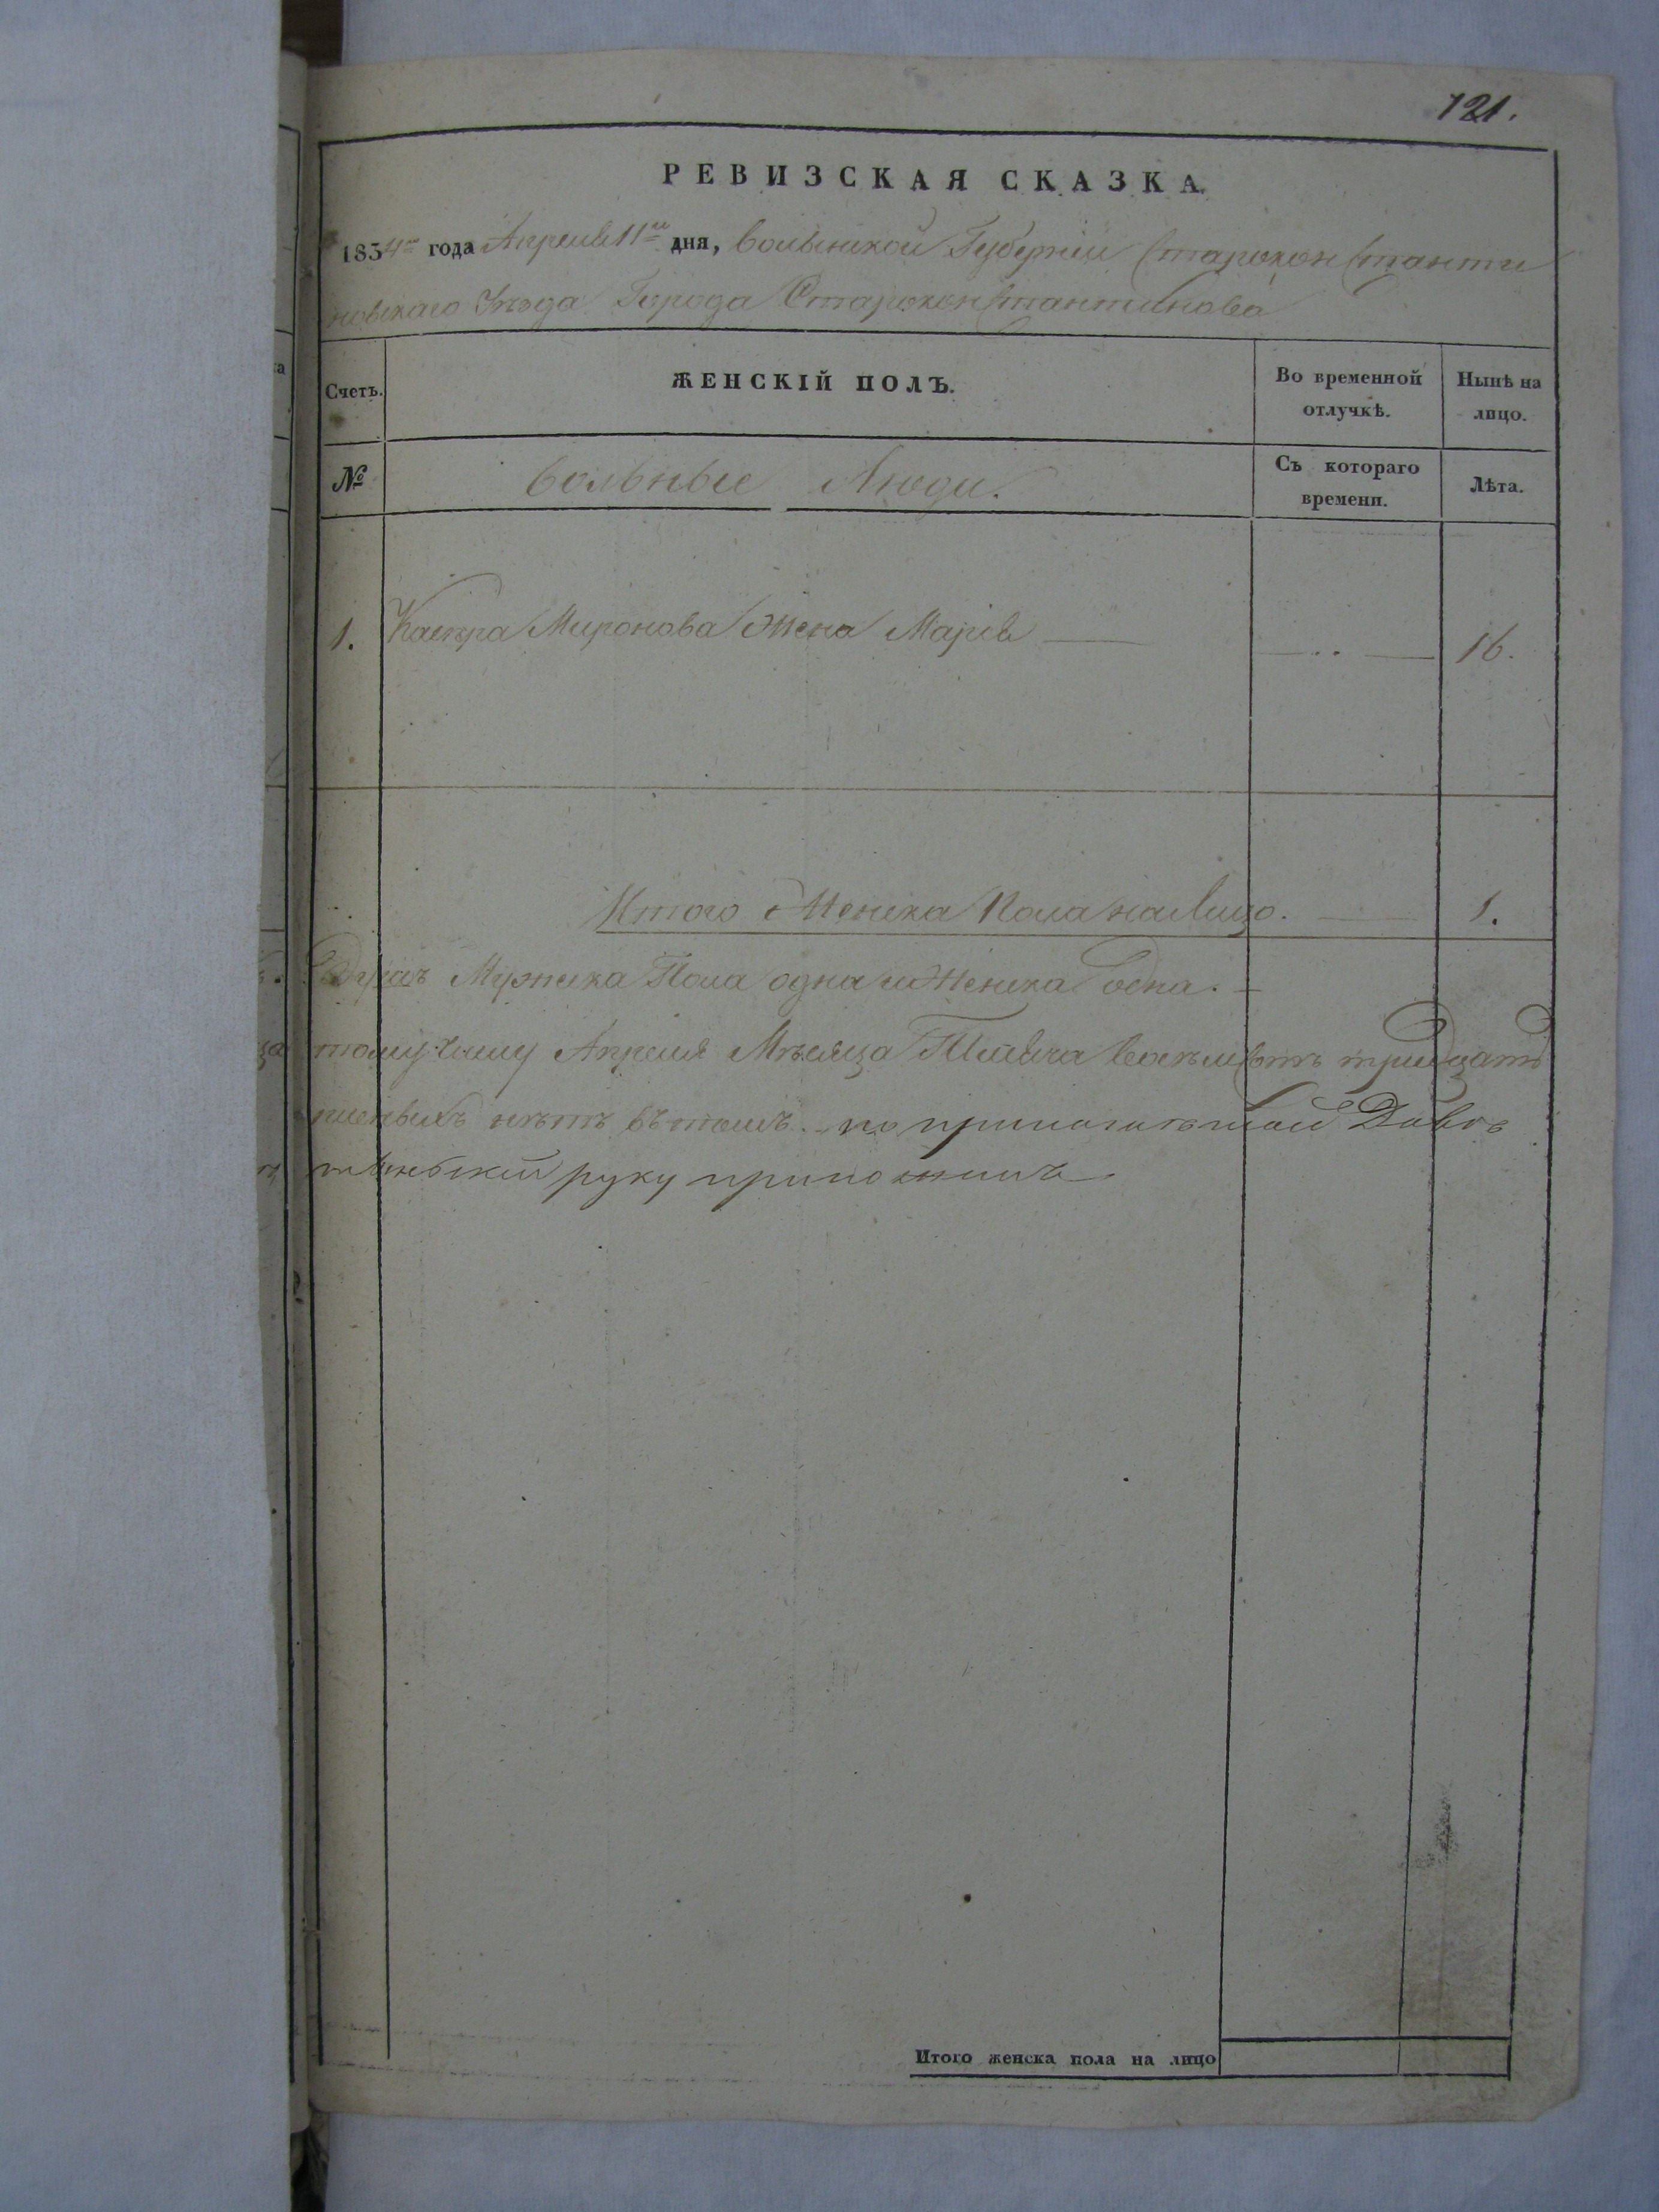 121.
РЕВИЗСКАЯ СКАЗКА.
1834го года Апреля 11го дня, Волынской Губернiи Староконстанти
новскаго Уѣзда Города Староконстантинова
Счетъ.
ЖЕНСКІЙ ПОЛЪ.
Во временной отлучкѣ.
Нынѣ на лицо.
№
Вольные Люди.
Съ котораго времени.
Лѣта.
1. Каспра Миронова Жена Марiя 16.
Итого Женска Пола на Лицо. 1.
Душъ Мужеска Пола одна и Женска одна.
Апреля Мѣсяца восемьсотъ тридцать
нѣтъ въ томъ по
руку приложилъ
Итого женска пола на лицо